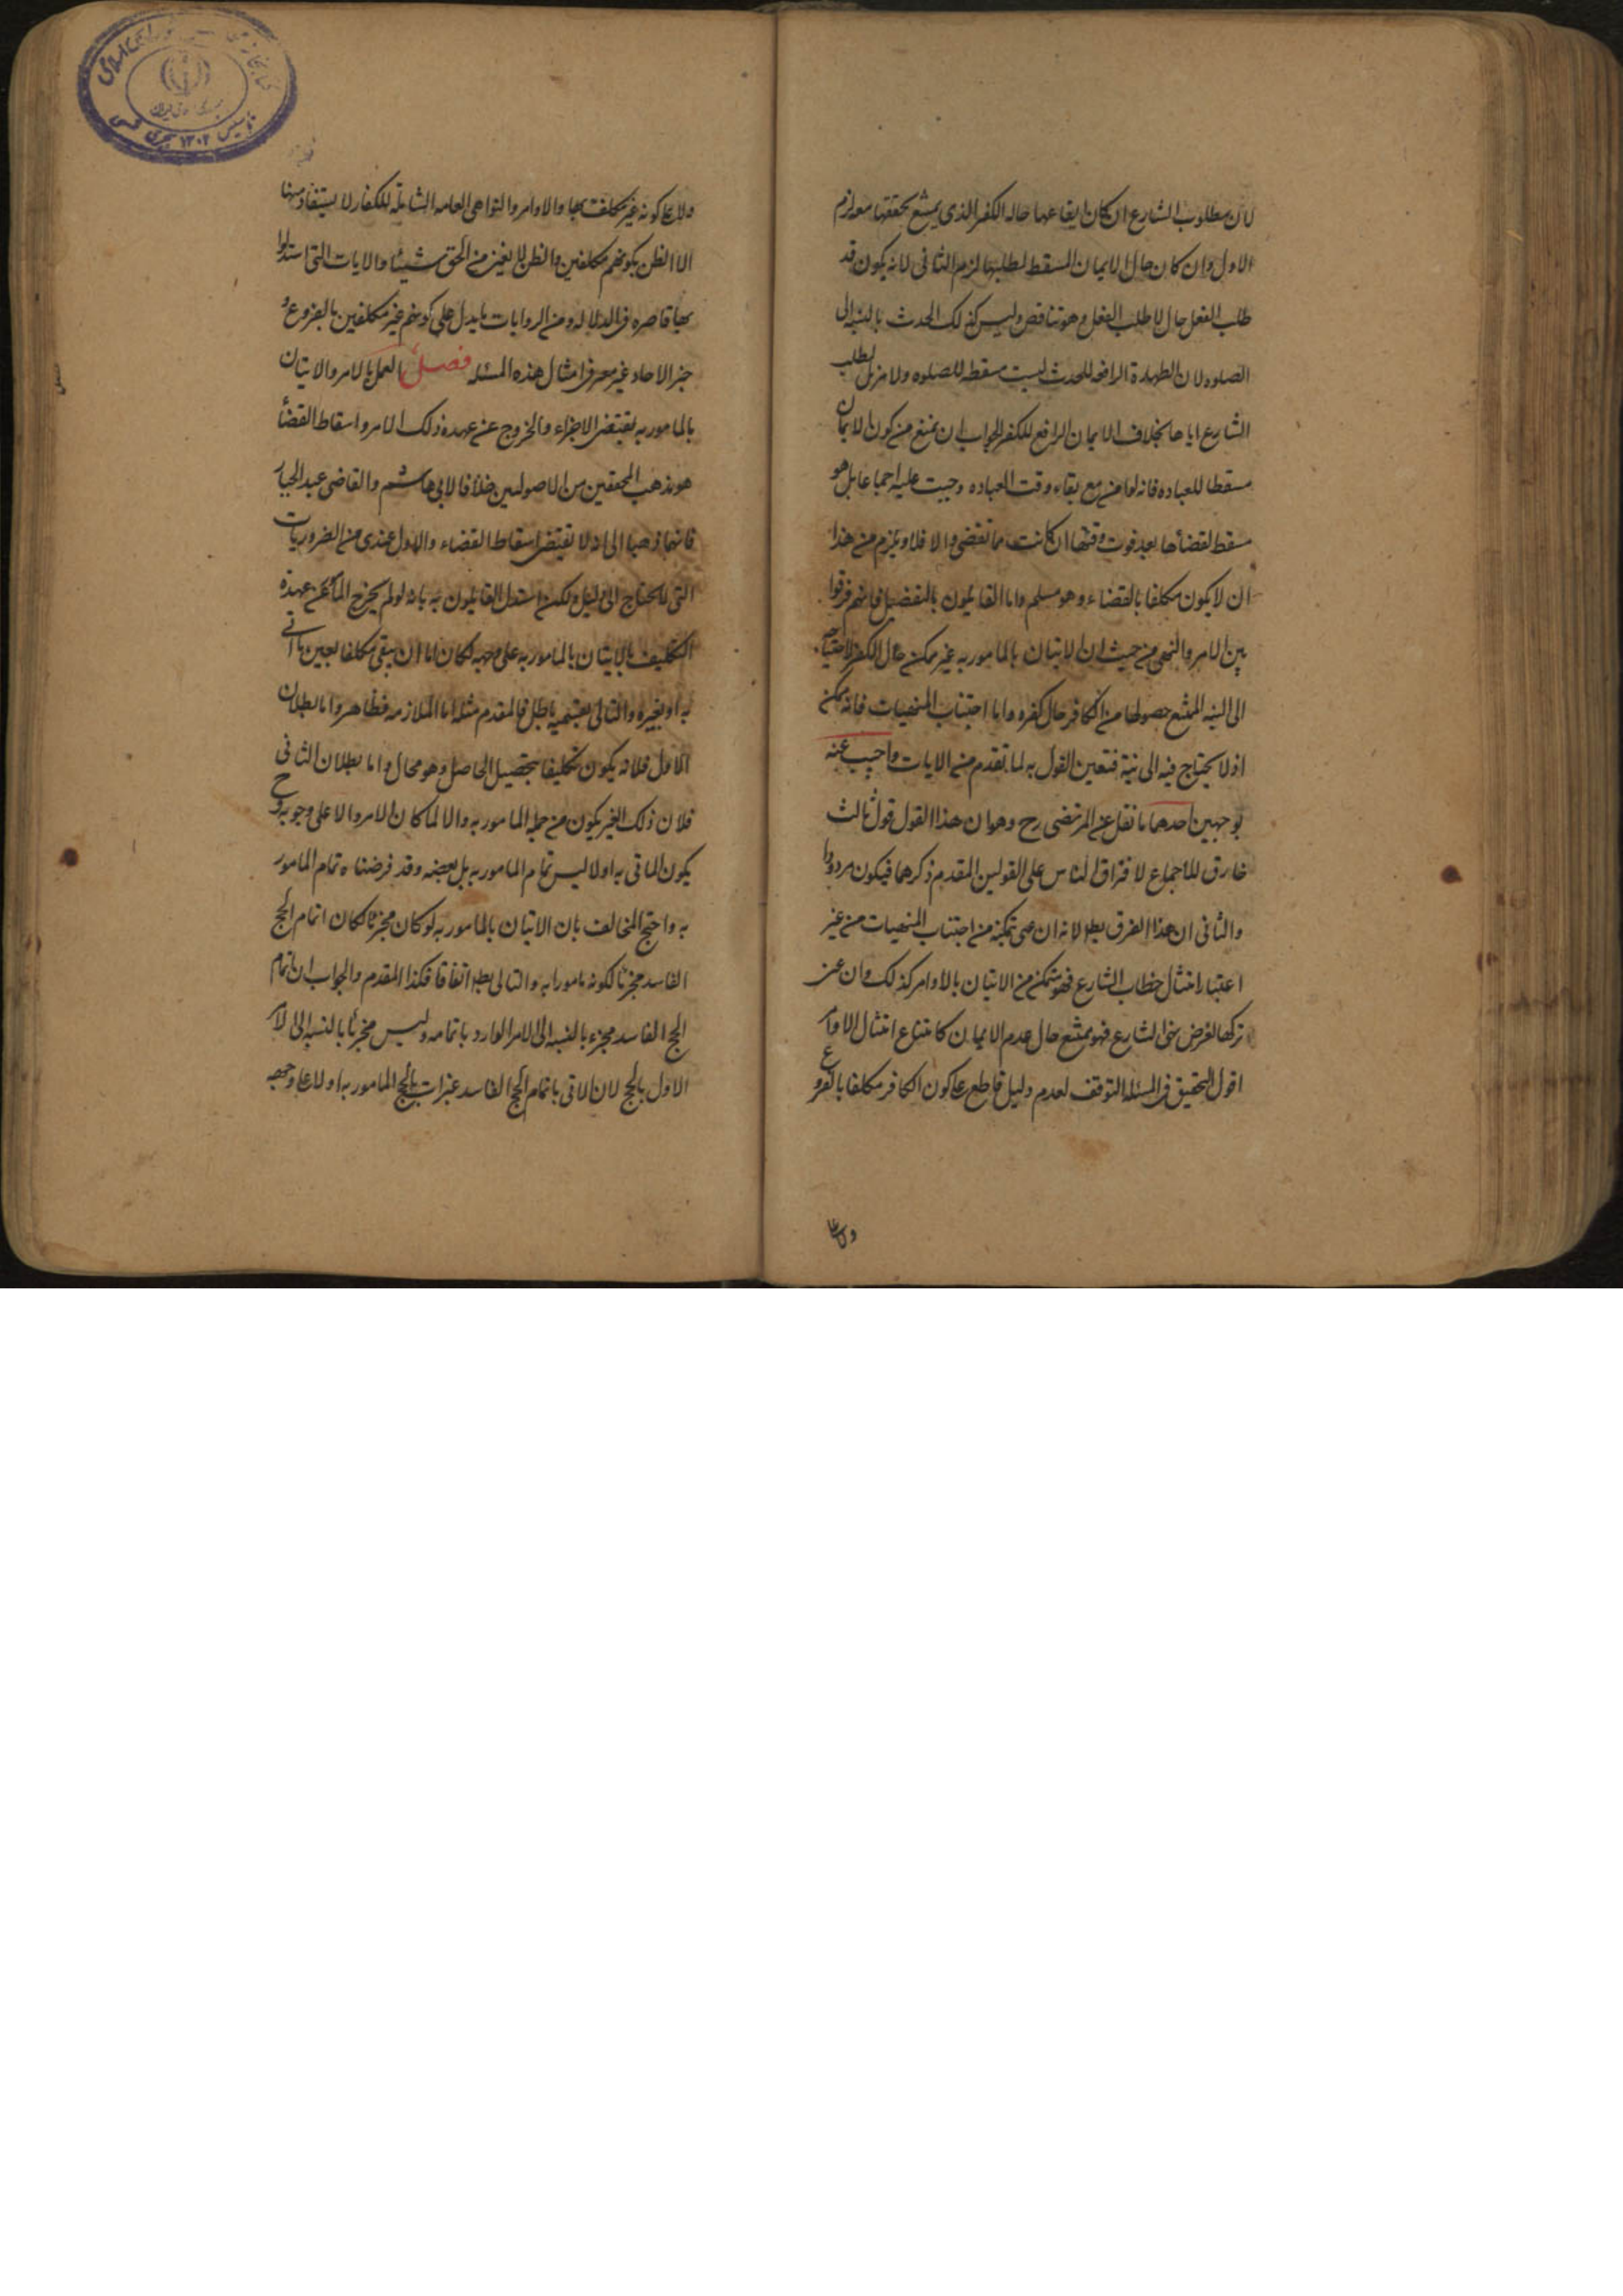 لان مطلوب الشارع ان كان ايقاعها حاله الكفر الذى يمتنع تحققها معه لزم
الاول وان كان حال الايمان المسقط لطلبها لزم الثانى لانه يكون قد
طلب الفعل حال لا طلب الفعل وهو تناقض وليس كذلك الحدث بالنسبه الى
الصلوه لان الطهارة الرافعه للحدث ليست مسقطه للصلوه ولا مزيل لطلب
الشارع اياها بخلاف الايمان الرافع للكفر الجواب ان نمنع من كون الايمان
مسقطا للعباده فانه لو امن مع بقاء وقت العباده وجبت عليه اجماعا بل هو
مسقط لقضائها بعد فوت وقتها ان كانت مما تقضى والا فلا ويلزم من هذا
ان لا يكون مكلفا بالقضاء وهو مسلم واما القايلون بالتفصيل فانهم فرقوا
بين الامر والنهى من حيث ان الاتيان بالمامور به غير ممكن حال الكفر لاحتياجه
الى النيه الممتنع حصولها من الكافر حال كفره واما اجتناب المنهيات فانه ممكن
اذ لا يحتاج فيه الى نية فتعين القول به لما تقدم من الايات واجيب عنه
بوجهين احدهما ما نقل عن المرتضى رح وهو ان هذا القول قول ثالث
خارق للاجماع لافتراق الناس على القولين المقدم ذكرهما فيكون مردودا
والثانى ان هذا الفرق بط لانه ان عنى تمكنه من اجتناب المنهيات من غير
اعتبار امتثال خطاب الشارع فهو متمكن من الاتيان بالاوامر كذلك وان عنى
تركها لغرض نهى الشارع فهو ممتنع حال عدم الايمان كامتناع امتثال الاوامر
اقول التحقيق فى المسئله التوقف لعدم دليل قاطع على كون الكافر مكلفا بالفروع
ولا على
ولا على كونه غير مكلف بها والاوامر والنواهى العامه الشاملة للكفار لا يستفاد منها
الا الظن بكونهم مكلفين والظن لا يغنى من الحق شيئا والايات التى استدلوا
بها قاصره فى الدلاله ومن الروايات ما يدل على كونهم غير مكلفين بالفروع و
خبر الاحاد غير معبر فى امثال هذه المسئله فصل العمل بالامر والاتيان
بالمامور به يقتضى الاجزاء والخروج عن عهدة ذلك الامر واسقاط القضأ
هو مذهب المحققين من الاصوليين خلافا لابى هاشم والقاضى عبد الجبار
فانهما ذهبا الى انه لا يقتضى اسقاط القضاء والاول عندى من الضروريات
التى لا يحتاج الى دليل ولكن استدل القايلون به بانه لو لم يخرج المكلف عن عهدة
التكليف بالاتيان بالمامور به على وجهه لكان اما ان يبقى مكلفا بعين ما اتى
به او بغيره والتالى بقسميه باطل فالمقدم مثله اما الملازمه فظاهر واما بطلان
الاول فلانه يكون تكليفا بتحصيل الحاصل وهو محال واما بطلان الثانى
فلان ذلك الغير يكون من جمله المامور به والا لما كان الامر والا على وجوبه وح
يكون الماتى به اولا ليس تمام المامور به بل بعضه وقد فرضناه تمام المامور
به واحتج المخالف بان الاتيان بالمامور به لو كان مجزئا لكان اتمام الحج
الفاسد مجزئا لكونه مامورا به والتالى بط اتفاقا فكذا المقدم والجواب ان اتمام
الحج الفاسد مجزء بالنسبه الى الامر الوارد باتمامه وليس مجزئا بالنسبه الى الامر
الاول بالحج لان الاتى باتمام الحج الفاسد غير ات بالحج المامور به اولا على وجهه